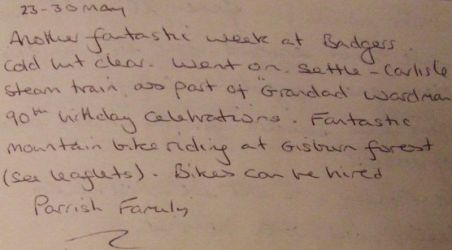 23-30 May
Another fantastic week at Badgers.
Cold but clear. Went on Settle-Carlisle
Steam train as part of "Grandad" Wardman
90th birthday celebrations. Fantastic
mountain bike riding at Gisburn forest
(see leaflets). Bikes can be hired
Parrish Family